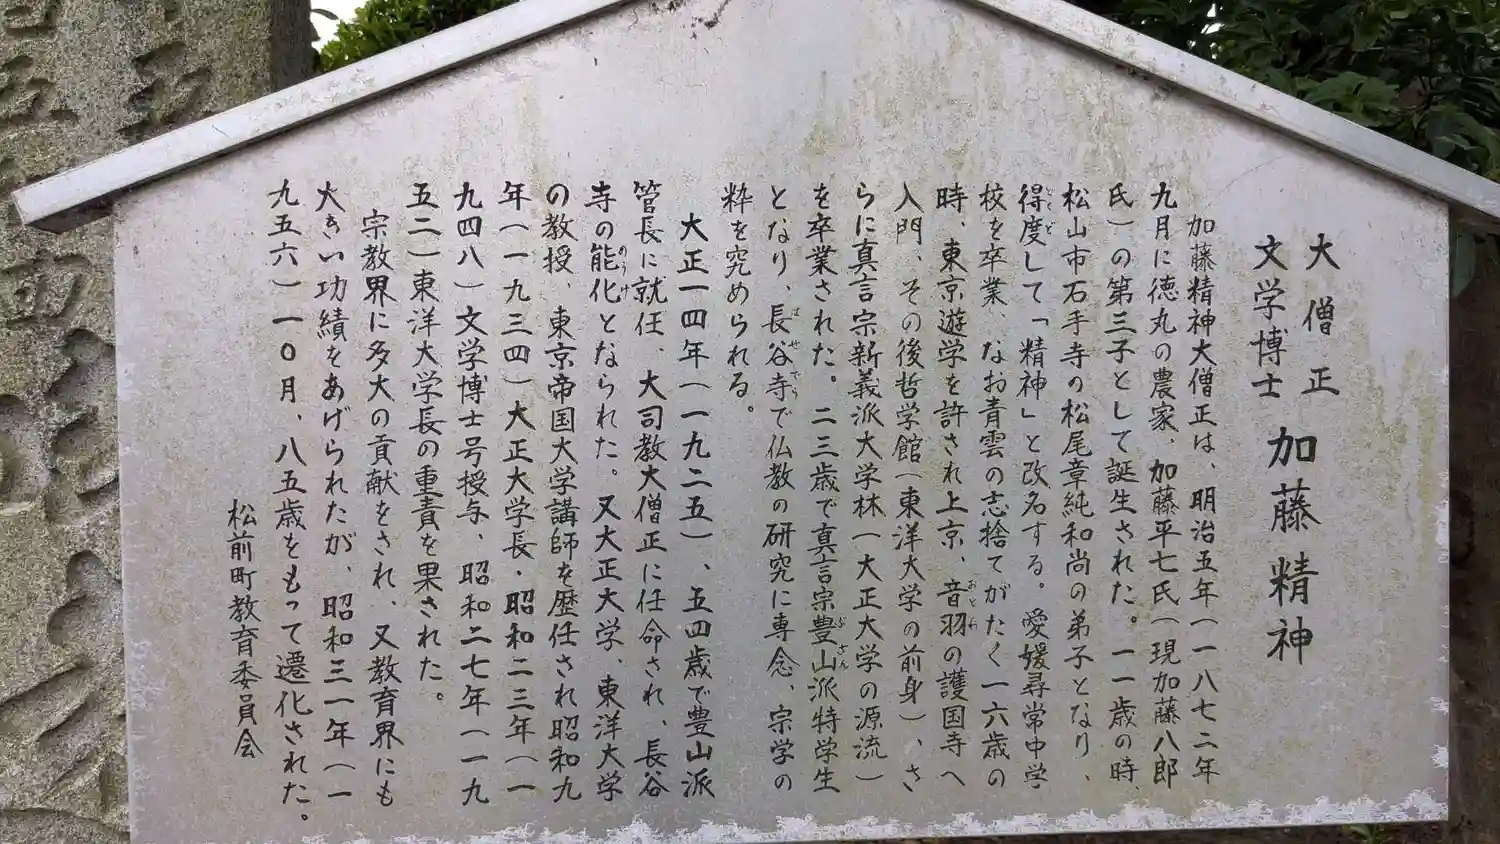 大僧正
文学博士
加藤精神
加藤精神大僧正は、明治五年(一八七二年
九月に徳丸の農家、加藤平七氏(現加藤八郎
氏)の第三子として誕生された。一一歳の時、
松山市石手寺の松尾章純和尚の弟子となり、
得度して「精神」と改名する。愛媛尋常中学
とくど
校を卒業、なお青雲の志捨てがたく一六歳の
時、東京遊学を許され上京、音羽の護国寺へ
おとわ
入門、その後哲学館(東洋大学の前身)、さ
らに真言宗新義派大学林(大正大学の源流)
を卒業された。二三歳で真言宗豊山派特学生
ぶざん
となり、長谷寺で仏教の研究に専念、宗学の
はせでら
粋を究められる。
大正一四年(一九二五)、五四歳で豊山派
管長に就任、大司教大僧正に任命され、長谷
寺の能化となられた。又大正大学、東洋大学
のうけ
の教授、東京帝国大学講師を歴任され昭和九
年(一九三四)大正大学長・昭和二三年(一
九四八)文学博士号授与、昭和二七年(一九
五二)東洋大学長の重責を果された。
宗教界に多大の貢献をされ、又教育界にも
大きい功績をあげられたが、昭和三一年(一
九五六)一〇月、八五歳をもって遷化された。
松前町教育委員会